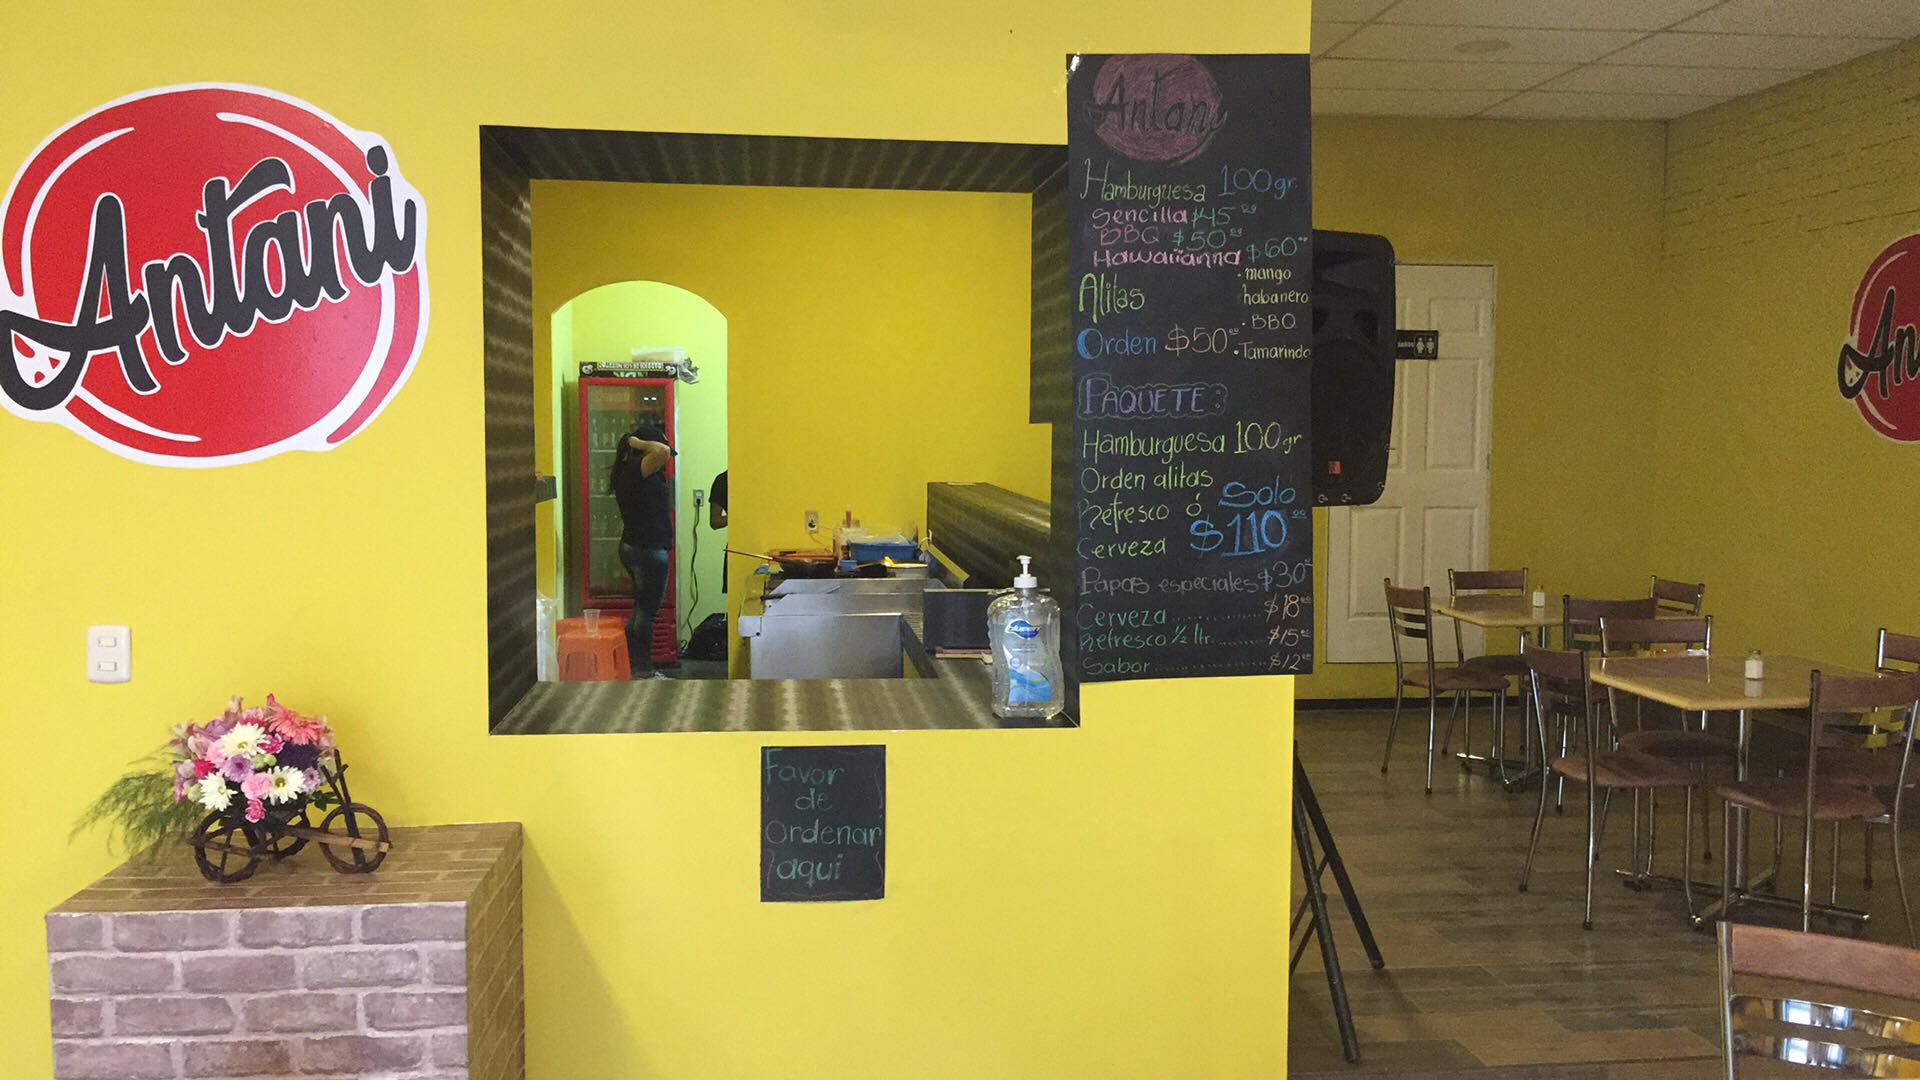 Antani
Antani
Hamburguesa 100gr.
Sencilla $45.00
BBQ $50.00
Hawaiianna $60.00
Alitas
• mango
habanero
• BBQ
• Tamarindo
Orden $50.00
PAQUETE:
Hamburguesa 100gr
Orden alitas
Refresco ó
Cerveza
Solo
$110.00
Papas especiales $30
Cerveza.......... $18.00
Refresco ½ ltr..... $15.00
Sabor............. $12.00
Favor
de
Ordenar
aqui
blumen
An